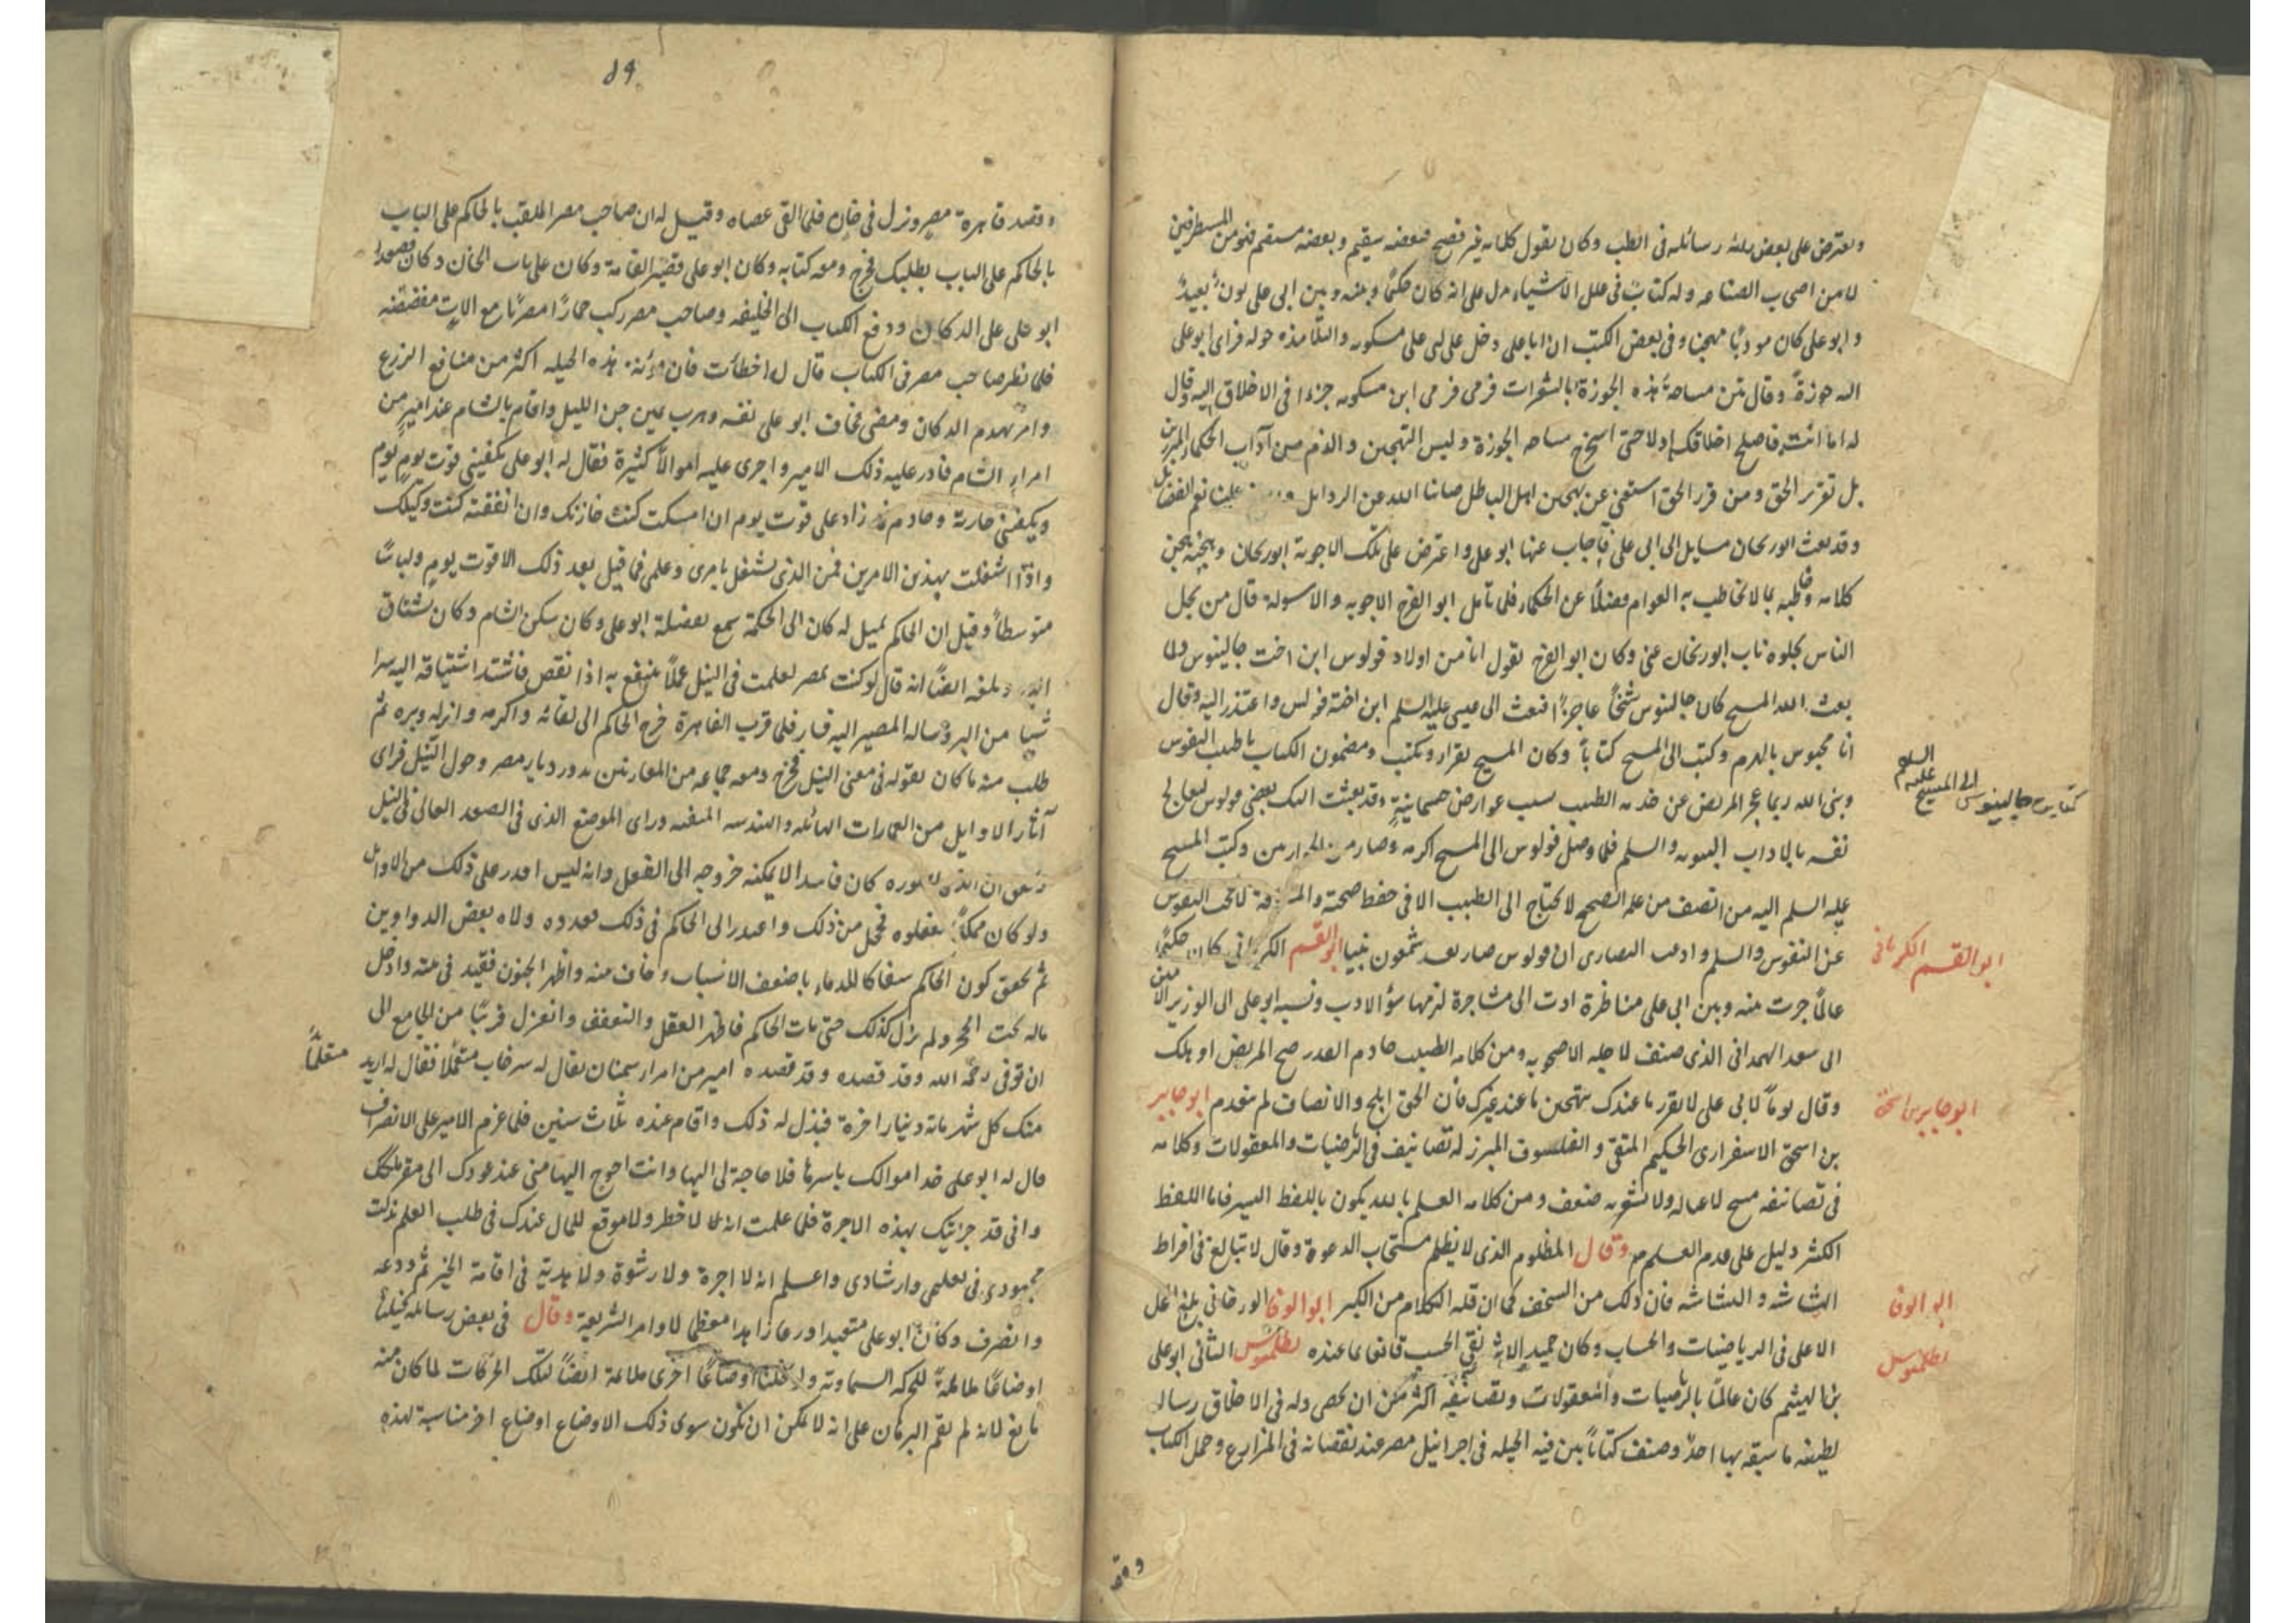 ويعترض على بعض رسائله فى الطب وكان يقول كلماته غير فصيح فبعضه سقيم وبعضه مستقيم فهو من المتطرفين
لا من اصحاب الصناعه وله كتاب فى علل الاشياء يدل على انه كان حكيما وبينه وبين ابى على بون بعيد
وابو على كان موذيا مهجنا وفى بعض الكتب ان ابا على دخل على ابى على مسكويه والتلامذه حوله فرمى ابو على
اليه جوزة وقال بين مساحة هذه الجوزة بالشعيرات فرمى ابن مسكويه جزءا فى الاخلاق اليه وقال
له اما انت فاصلح اخلاقك اولا حتى استخرج مساحه الجوزة وليس التهجين والذم من آداب الحكماء المبرزين
بل تقرير الحق ومن قرر الحق استغنى عن تهجين اهل الباطل صاننا الله عن الرذايل علينا نعم الفضايل
وقد بعث ابو ريحان مسايل الى ابى على فأجاب عنها ابو على واعترض على تلك الاجوبة ابو ريحان وهجنه وهجن
كلامه وخاطبه بما لا يخاطب به العوام فضلا عن الحكماء فلما تأمل ابو الفرج الاجوبه والاسولة قال من نجل
الناس نجلوه ناب ابو ريحان عنى وكان ابو الفرج يقول انا من اولاد فولوس ابن اخت جالينوس ولما
بعث الله المسيح كان جالينوس شيخا عاجزا فبعث الى عيسى عليه السلم ابن اخته فولس واعتذر اليه وقال
انا محبوس بالهرم وكتب الى المسيح كتابا وكان المسيح يقرا ويكتب ومضمون الكتاب يا طبيب النفوس
ونبى الله ربما عجز المريض عن خدمه الطبيب بسبب عوارض جسمانية وقد بعثت اليك بعضى فولوس ليعالج
نفسه بالاداب النبويه والسلم فلما وصل فولوس الى المسيح اكرمه وصار من الحواريين وكتب المسيح
عليه السلم اليه من انصف من علمه الصحيح لا يحتاج الى الطبيب الا فى حفظ صحته والمسافة لا تحجب النفوس
عن النفوس والسلم وادعت النصارى ان فولوس صار بعد شمعون نبيا ابو القسم الكرمانى كان حكيما
عالما جرت بينه وبين ابى على مناظرة ادت الى مشاجرة لزمها سوء الادب ونسبه ابو على الى الوزير الامين
ابى سعد الهمدانى الذى صنف لاجله الاضحويه ومن كلامه الطبيب خادم القدر صح المريض او هلك
وقال يوما لابى على لا تقرر ما عندك بتهجين ما عند غيرك فان الحق ابلج والانصاف لم يعدم ابو جابر
بن اسحق الاسفرارى الحكيم المتقى والفلسوف المبرز له تصانيف فى الرياضيات والمعقولات وكلامه
فى تصانيفه ولا يشوبه ضعف ومن كلامه العلم بالله يكون باللفظ اليسير فاما اللفظ
الكثير دليل على عدم العلم وقال المظلوم الذى لا يظلم مستجاب الدعوة وقال لا تبالغ فى افراط
الهشاشه والبشاشه فان ذلك من السخف كما ان قله الكلام من الكبر ابو الوفا البوزجانى بلغ المحل
الاعلى فى الرياضيات والحساب وكان حميد نقى الجيب قانعا بما عنده بطلميوس الثانى ابو على
بن الهيثم كان عالما بالرياضيات والمعقولات وتصانيفه اكثر من ان تحصى وله فى الاخلاق رساله
لطيفه ما سبقه بها احد وصنف كتابا بين فيه الحيله فى اجراء نيل مصر عند نقصانه فى المزارع وحمل الكتاب
كتابت جالينوس الى المسيح عليه السلم
ابو القسم الكرمانى
ابو جابر بن اسحق
ابو الوفا
بطلميوس
وقصد
٨٩
وقصد قاهرة مصر ونزل فى خان فلما القى عصاه وقيل له ان صاحب مصر الملقب بالحاكم على الباب
بالحاكم على الباب يطلبك فخرج ومعه كتابه وكان ابو على قصير القامة وكان على باب الخان دكان فصعد
ابو على على الدكان ودفع الكتاب الى الخليفه وصاحب مصر ركب حمارا مصريا مع الات مفضضه
فلما نظر صاحب مصر فى الكتاب قال له اخطأت فان مؤنة هذه الحيله اكثر من منافع الزرع
وامر بهدم الدكان ومضى فخاف ابو على نفسه وهرب حين جن الليل واقام بالشام عند امير من
امراء الشام فادر عليه ذلك الامير واجرى عليه اموالا كثيرة فقال له ابو على تكفينى قوت يوم يوم
ويكفينى جارية وخادم فما زاد على قوت يوم ان امسكت كنت خازنك وان انفقته كنت وكيلك
واذا اشغلت بهذين الامرين فمن الذى يشتغل بامرى وعلمى فما قبل بعد ذلك الا قوت يوم ولباسا
متوسطا وقيل ان الحاكم لميل له كان الى الحكمة سمع بفضيلة ابو على وكان يسكن الشام وكان يشتاق
اليه وبلغه ايضا انه قال لو كنت بمصر لعلمت فى النيل عملا ينتفع به اذا نقص فاشتد اشتياقه اليه سرا
شيا من البر وساله المصير اليه فسار فلما قرب القاهرة خرج الحاكم الى لقائه واكرمه وانزله وبره ثم
طلب منه ما كان يقوله فى معنى النيل فخرج ومعه جماعه من المعمارين يدور ديار مصر وحول النيل فراى
آثار الاوايل من العمارات الهائله والهندسه المتقنه وراى الموضع الذى فى الصعيد العالى فى النيل
كان فاسدا لا يمكنه خروجه الى الفعل وانه ليس اقدر على ذلك من الاوايل
ولو كان ممكنا لفعلوه فخجل من ذلك واعتذر الى الحاكم فى ذلك فعذره وولاه بعض الدواوين
ثم تحقق كون الحاكم سفاكا للدماء باضعف الاسباب وخاف منه واظهر الجنون فقيد فى بيته وادخل
ماله تحت الحجر ولم يزل كذلك حتى مات الحاكم فاظهر العقل والتعفف وانعزل قريبا من الجامع الى
ان توفى رحمة الله وقد قصده امير من امراء سمنان يقال له سرخاب متعلما فقال له اريد
منك كل شهر مائة دينار اجرة فبذل له ذلك واقام عنده ثلاث سنين فلما عزم الامير على الانصراف
قال له ابو على خذ اموالك باسرها فلا حاجة لى اليها وانت احوج اليها منى عند عودك الى مقر ملكك
وانى قد جربتك بهذه الاجرة فلما علمت انه لا خطر ولا موقع للمال عندك فى طلب العلم بذلت
مجهودى فى تعليمى وارشادى واعلم انه لا اجرة ولا رشوة ولا هدية فى اقامة الخير ثم ودعه
وانصرف وكان ابو على متعبدا ورعا زاهدا معظما لاوامر الشريعة وقال فى بعض رسائله تخيلنا
اوضاعا ملائمة للحركه السماويه ولو تخيلنا اوضاعا اخرى ملائمة ايضا لتلك الحركات لما كان منه
مانع لانه لم يقم البرهان على انه لا يمكن ان يكون سوى ذلك الاوضاع اوضاع اخر مناسبة لهذه
متعلما